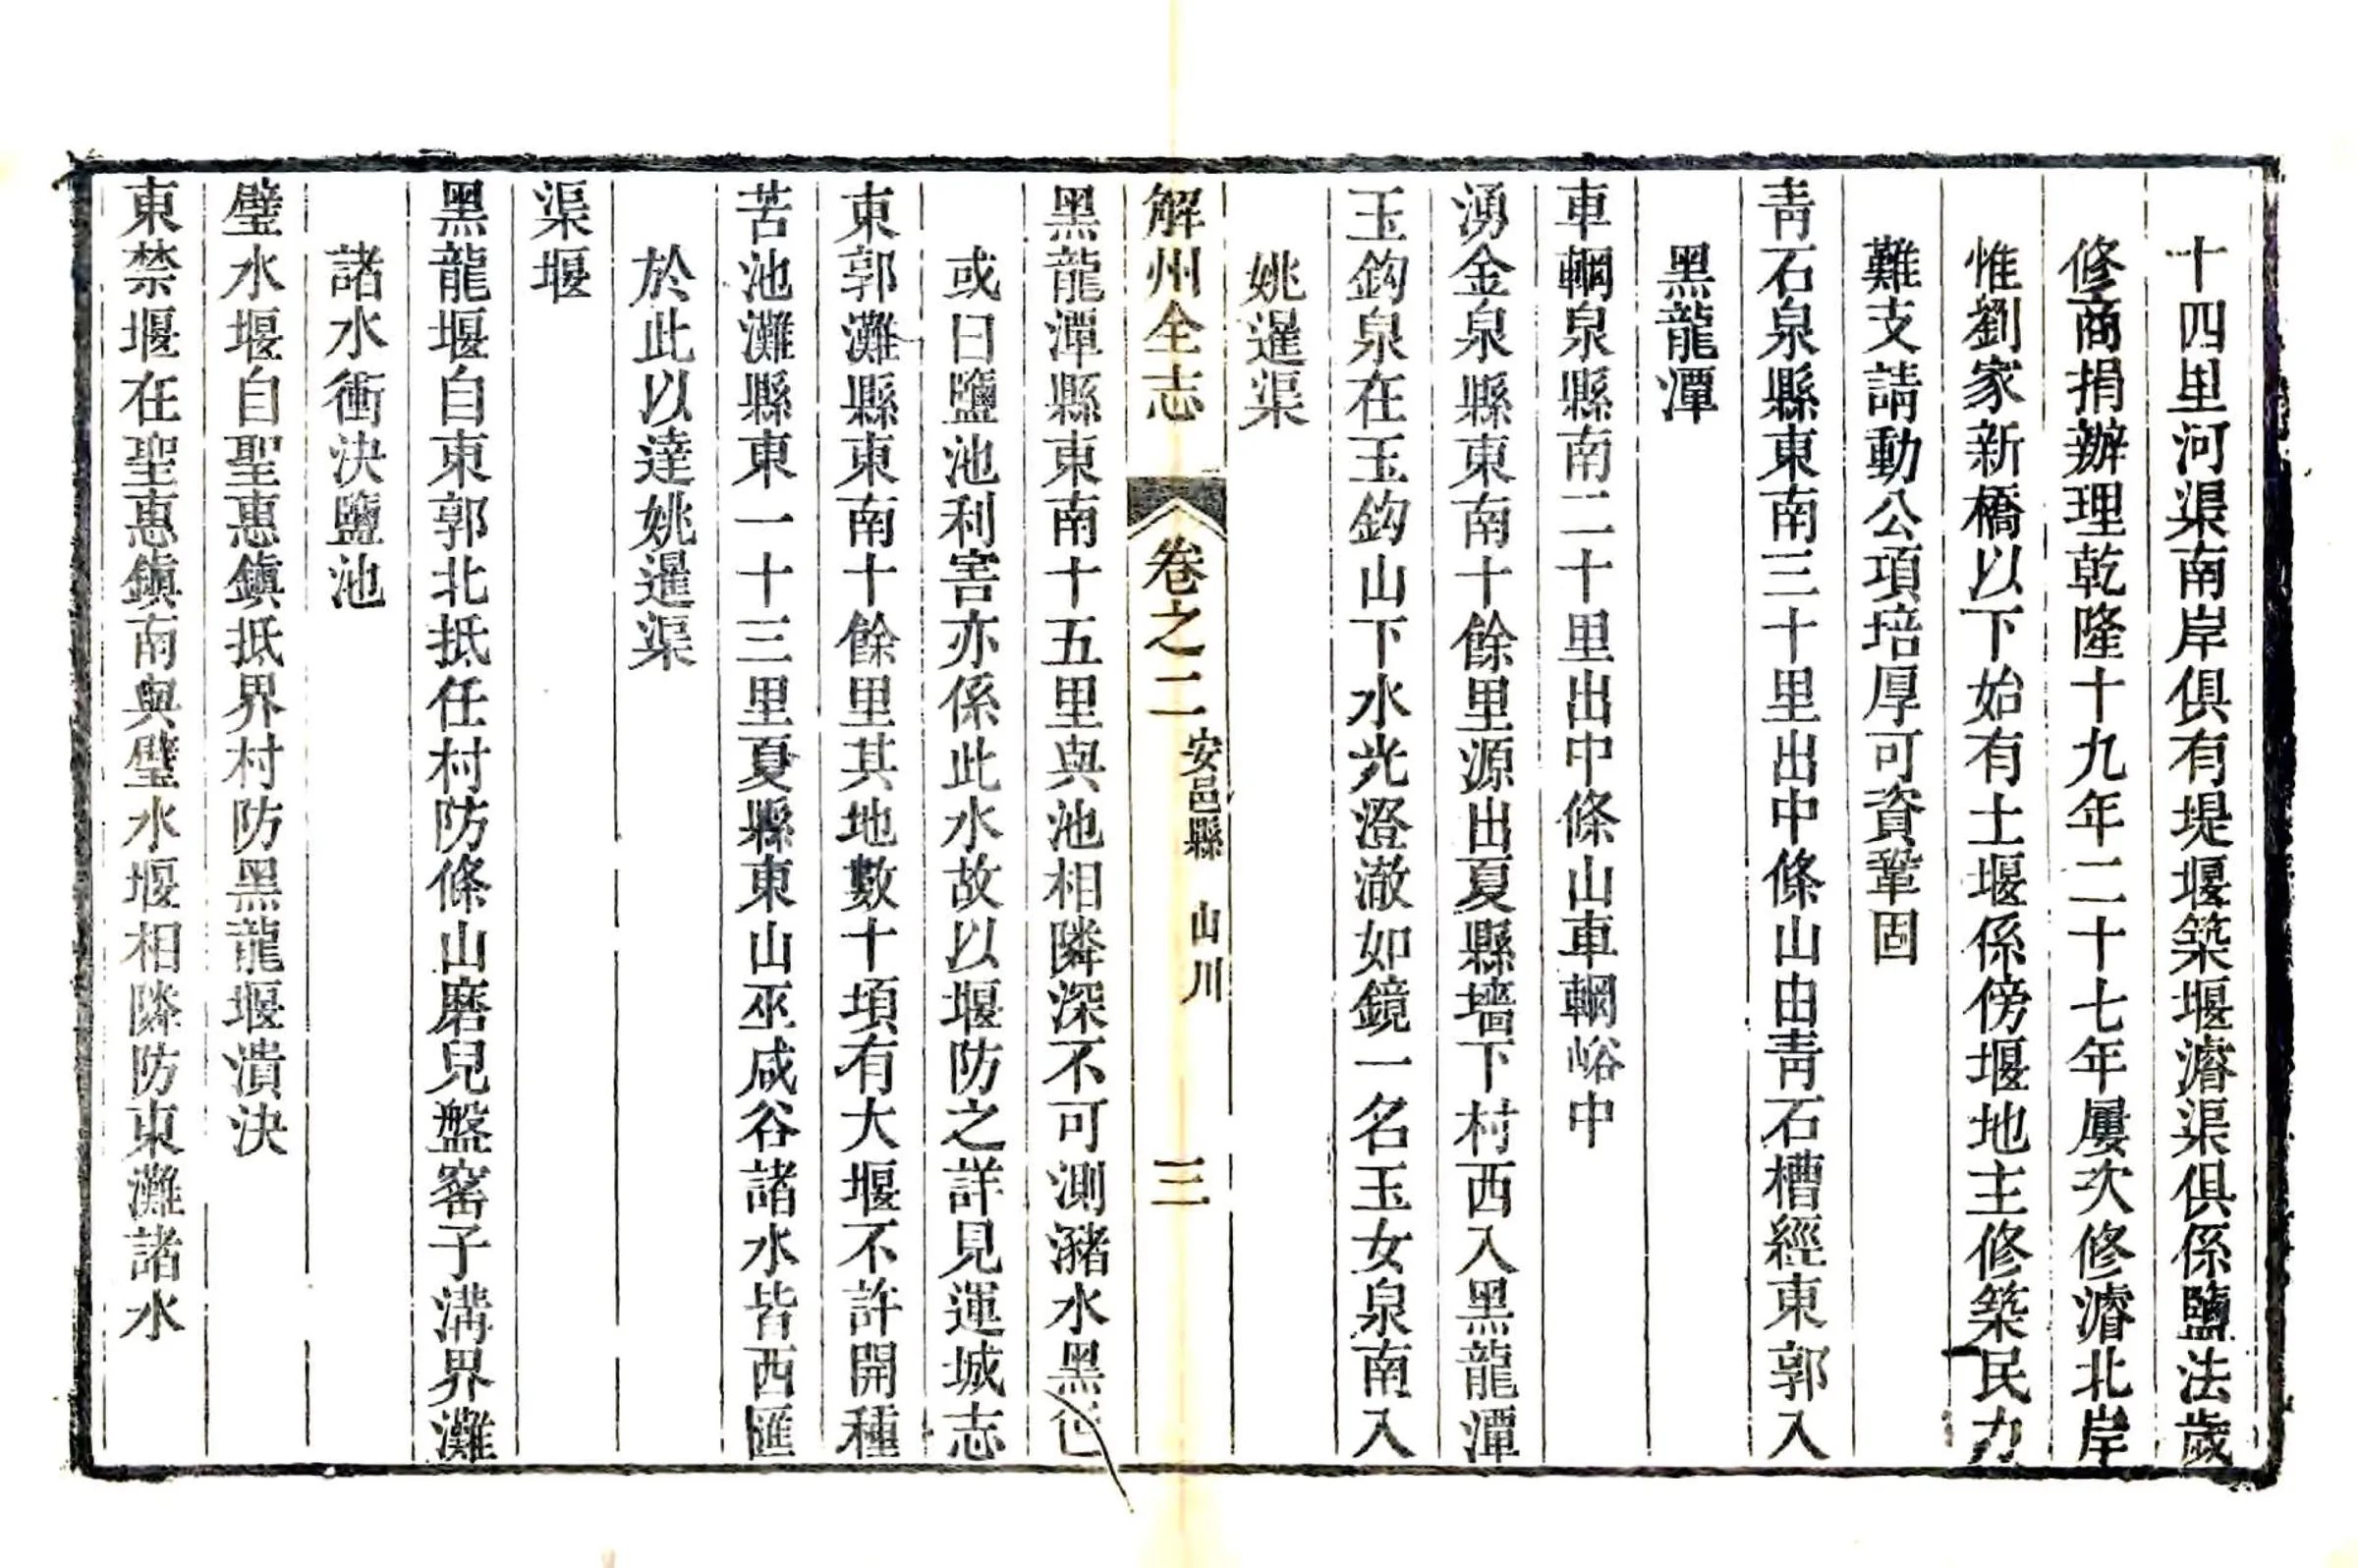 十四里河渠南岸俱有堤堰築堰濬渠俱係鹽法歲
修商捐辦理乾隆十九年二十七年屢次修濬北岸
惟劉家新橋以下始有土堰係傍堰地主修築民力
難支請動公項培厚可資鞏固
青石泉縣東南三十里出中條山由青石槽經東郭入
黑龍潭
車輞泉縣南二十里出中條山車輞峪中
湧金泉縣東南十餘里源出夏縣墻下村西入黑龍潭
玉鈎泉在玉鈎山下水光澄澈如鏡一名玉女泉南入
姚暹渠
解州全志 卷之二 安邑縣 山川 三
黑龍潭縣東南十五里與池相隣深不可測瀦水黑色
或曰鹽池利害亦係此水故以堰防之詳見運城志
東郭灘縣東南十餘里其地數十頃有大堰不許開種
苦池灘縣東一十三里夏縣東山巫咸谷諸水皆西匯
於此以達姚暹渠
渠堰
黑龍堰自東郭北抵任村防條山磨兒盤窰子溝界灘
諸水衝決鹽池
璧水堰自聖惠鎮抵界村防黑龍堰潰決
東禁堰在聖惠鎮南與璧水堰相隣防東灘諸水